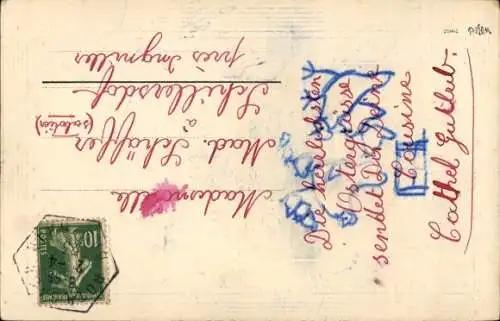 Mademoiselle
Mad. Schäffer
à (station)
Schillersdorf
près Ingwiller
Die herzlichsten
Ostergrüsse
sendet Dir Deine
Cousine
Cathel Gutlub.
10c
POSTES